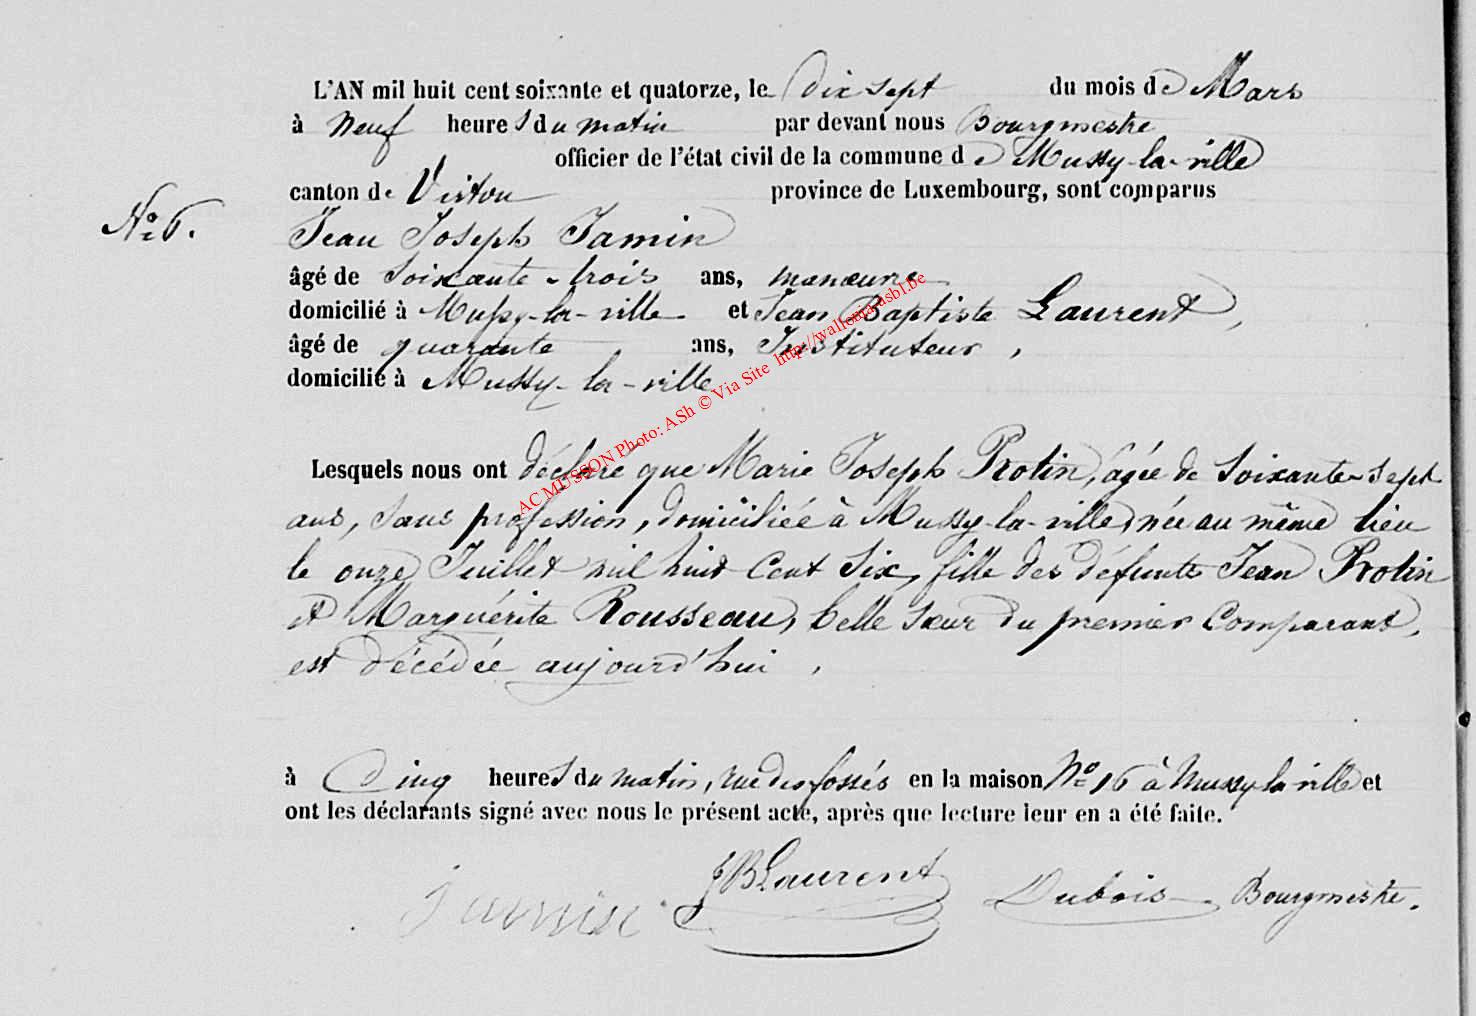 L'AN mil huit cent soixante et quatorze, le dix sept du mois de Mars
à neuf heures du matin par devant nous Bourgmestre
officier de l'état civil de la commune de Mussy-la-ville
canton de Virton province de Luxembourg, sont comparus
N° 6. Jean Joseph Jamin
âgé de soixante-trois ans, manœuvre
domicilié à Mussy-la-ville et Jean Baptiste Laurent,
âgé de quarante ans, Instituteur,
domicilié à Mussy-la-ville
AC MUSSON Photo: ASh © Via Site http://wallonia.asbl.be
Lesquels nous ont déclaré que Marie Joseph Rotin, âgée de soixante-sept
ans, sans profession, domiciliée à Mussy-la-ville, née au même lieu
le onze Juillet mil huit cent six, fille des défunts Jean Rotin
et Marguérite Rousseau, belle sœur du premier Comparant,
est décédée aujourd'hui,
à Cinq heures du matin, rue des fossés en la maison N° 16 à Mussy la ville et
ont les déclarants signé avec nous le présent acte, après que lecture leur en a été faite.
Jamin JBLaurent Dubois Bourgmestre.